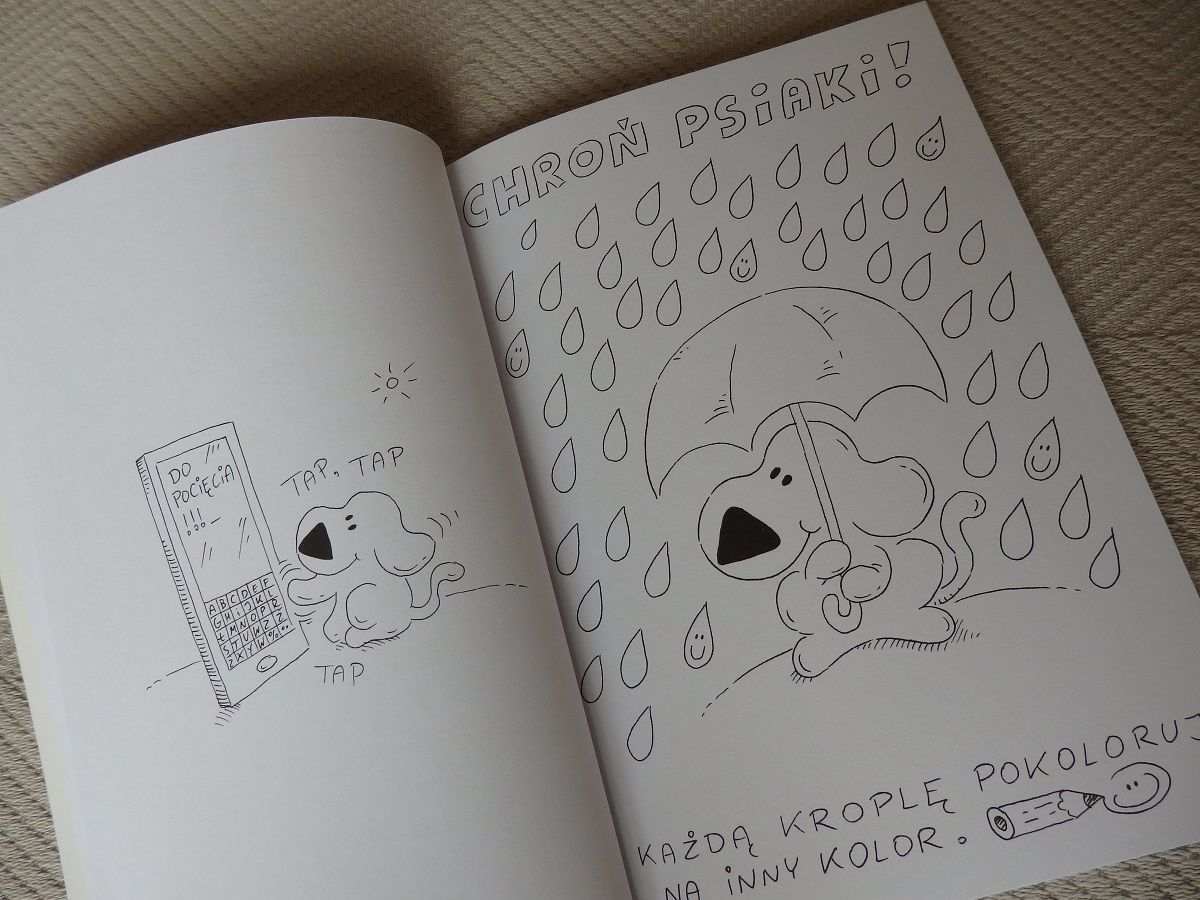 DO
POCIĘCIA
!!!
TAP, TAP
A B C D E F
G H I J K L
Ł M N O P R
S T U W Z Ż
X Y W %
TAP
CHROŃ PSIAKI!
KAŻDĄ KROPLĘ POKOLORUJ
NA INNY KOLOR.